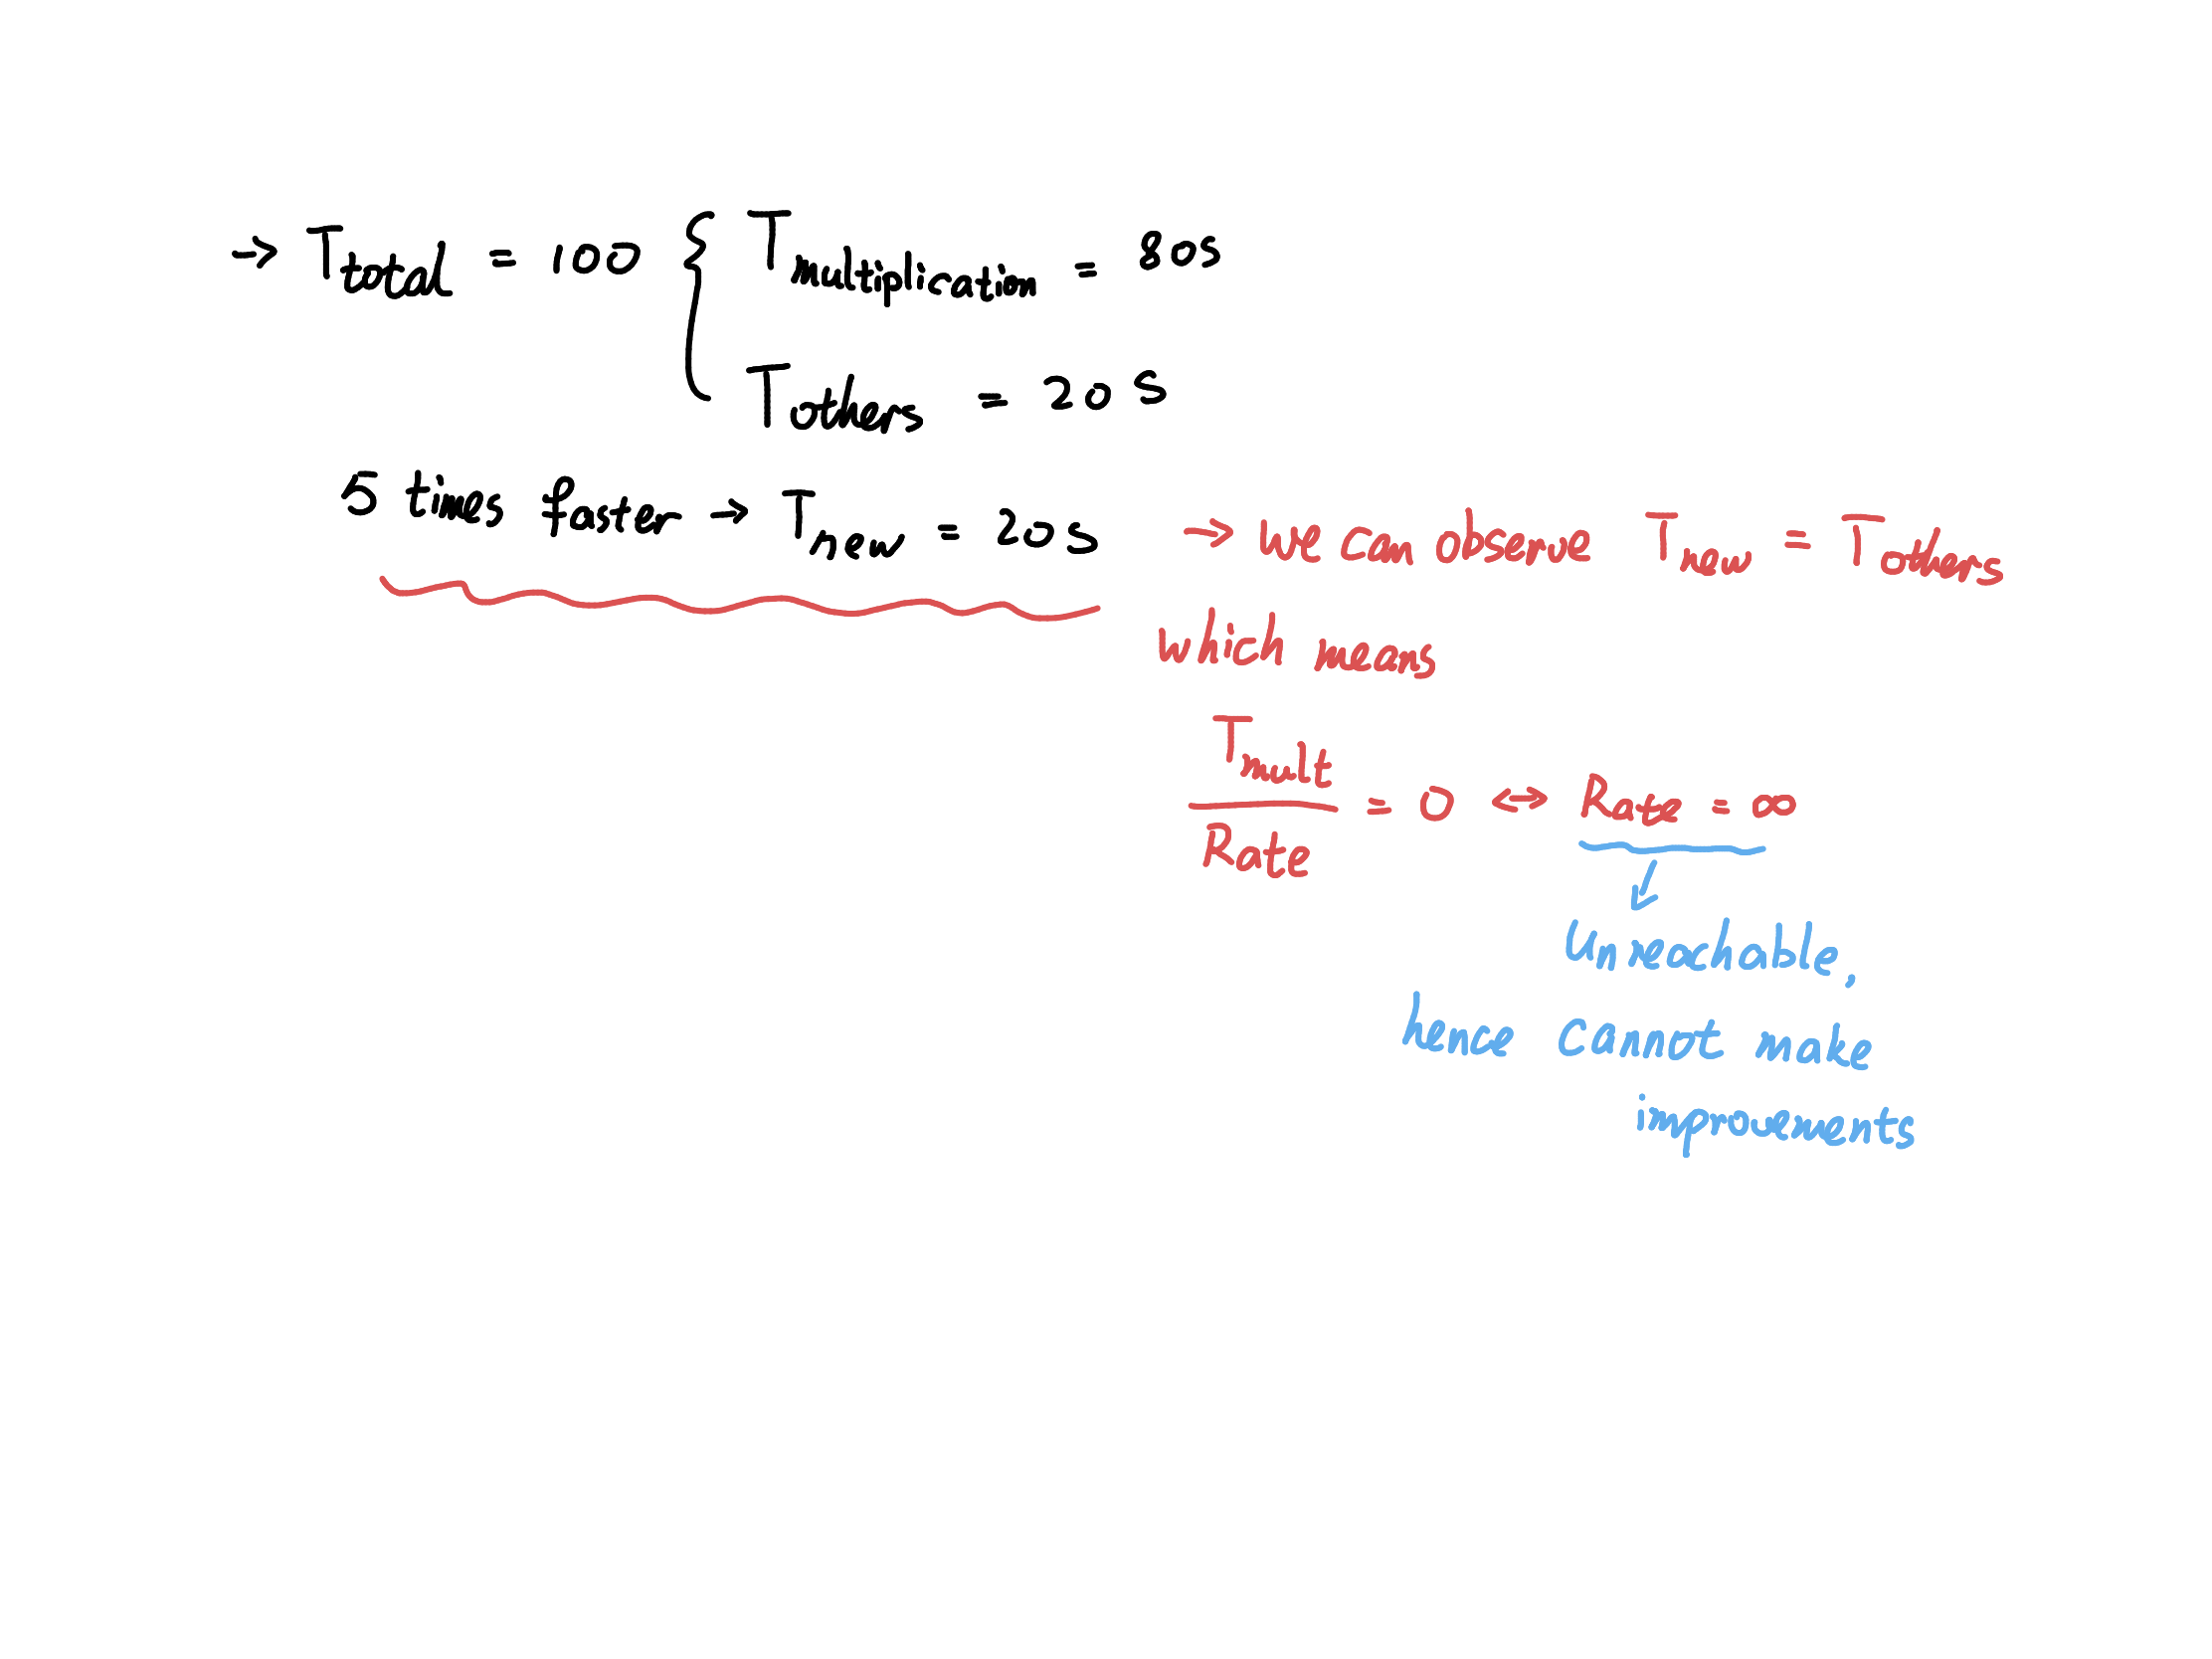 → T total = 100 { T multiplication = 80s
T others = 20s
5 times faster → T new = 20s → We can observe T new = T others
which means
T mult / Rate = 0 ↔ Rate = ∞
Unreachable,
hence cannot make
improvements